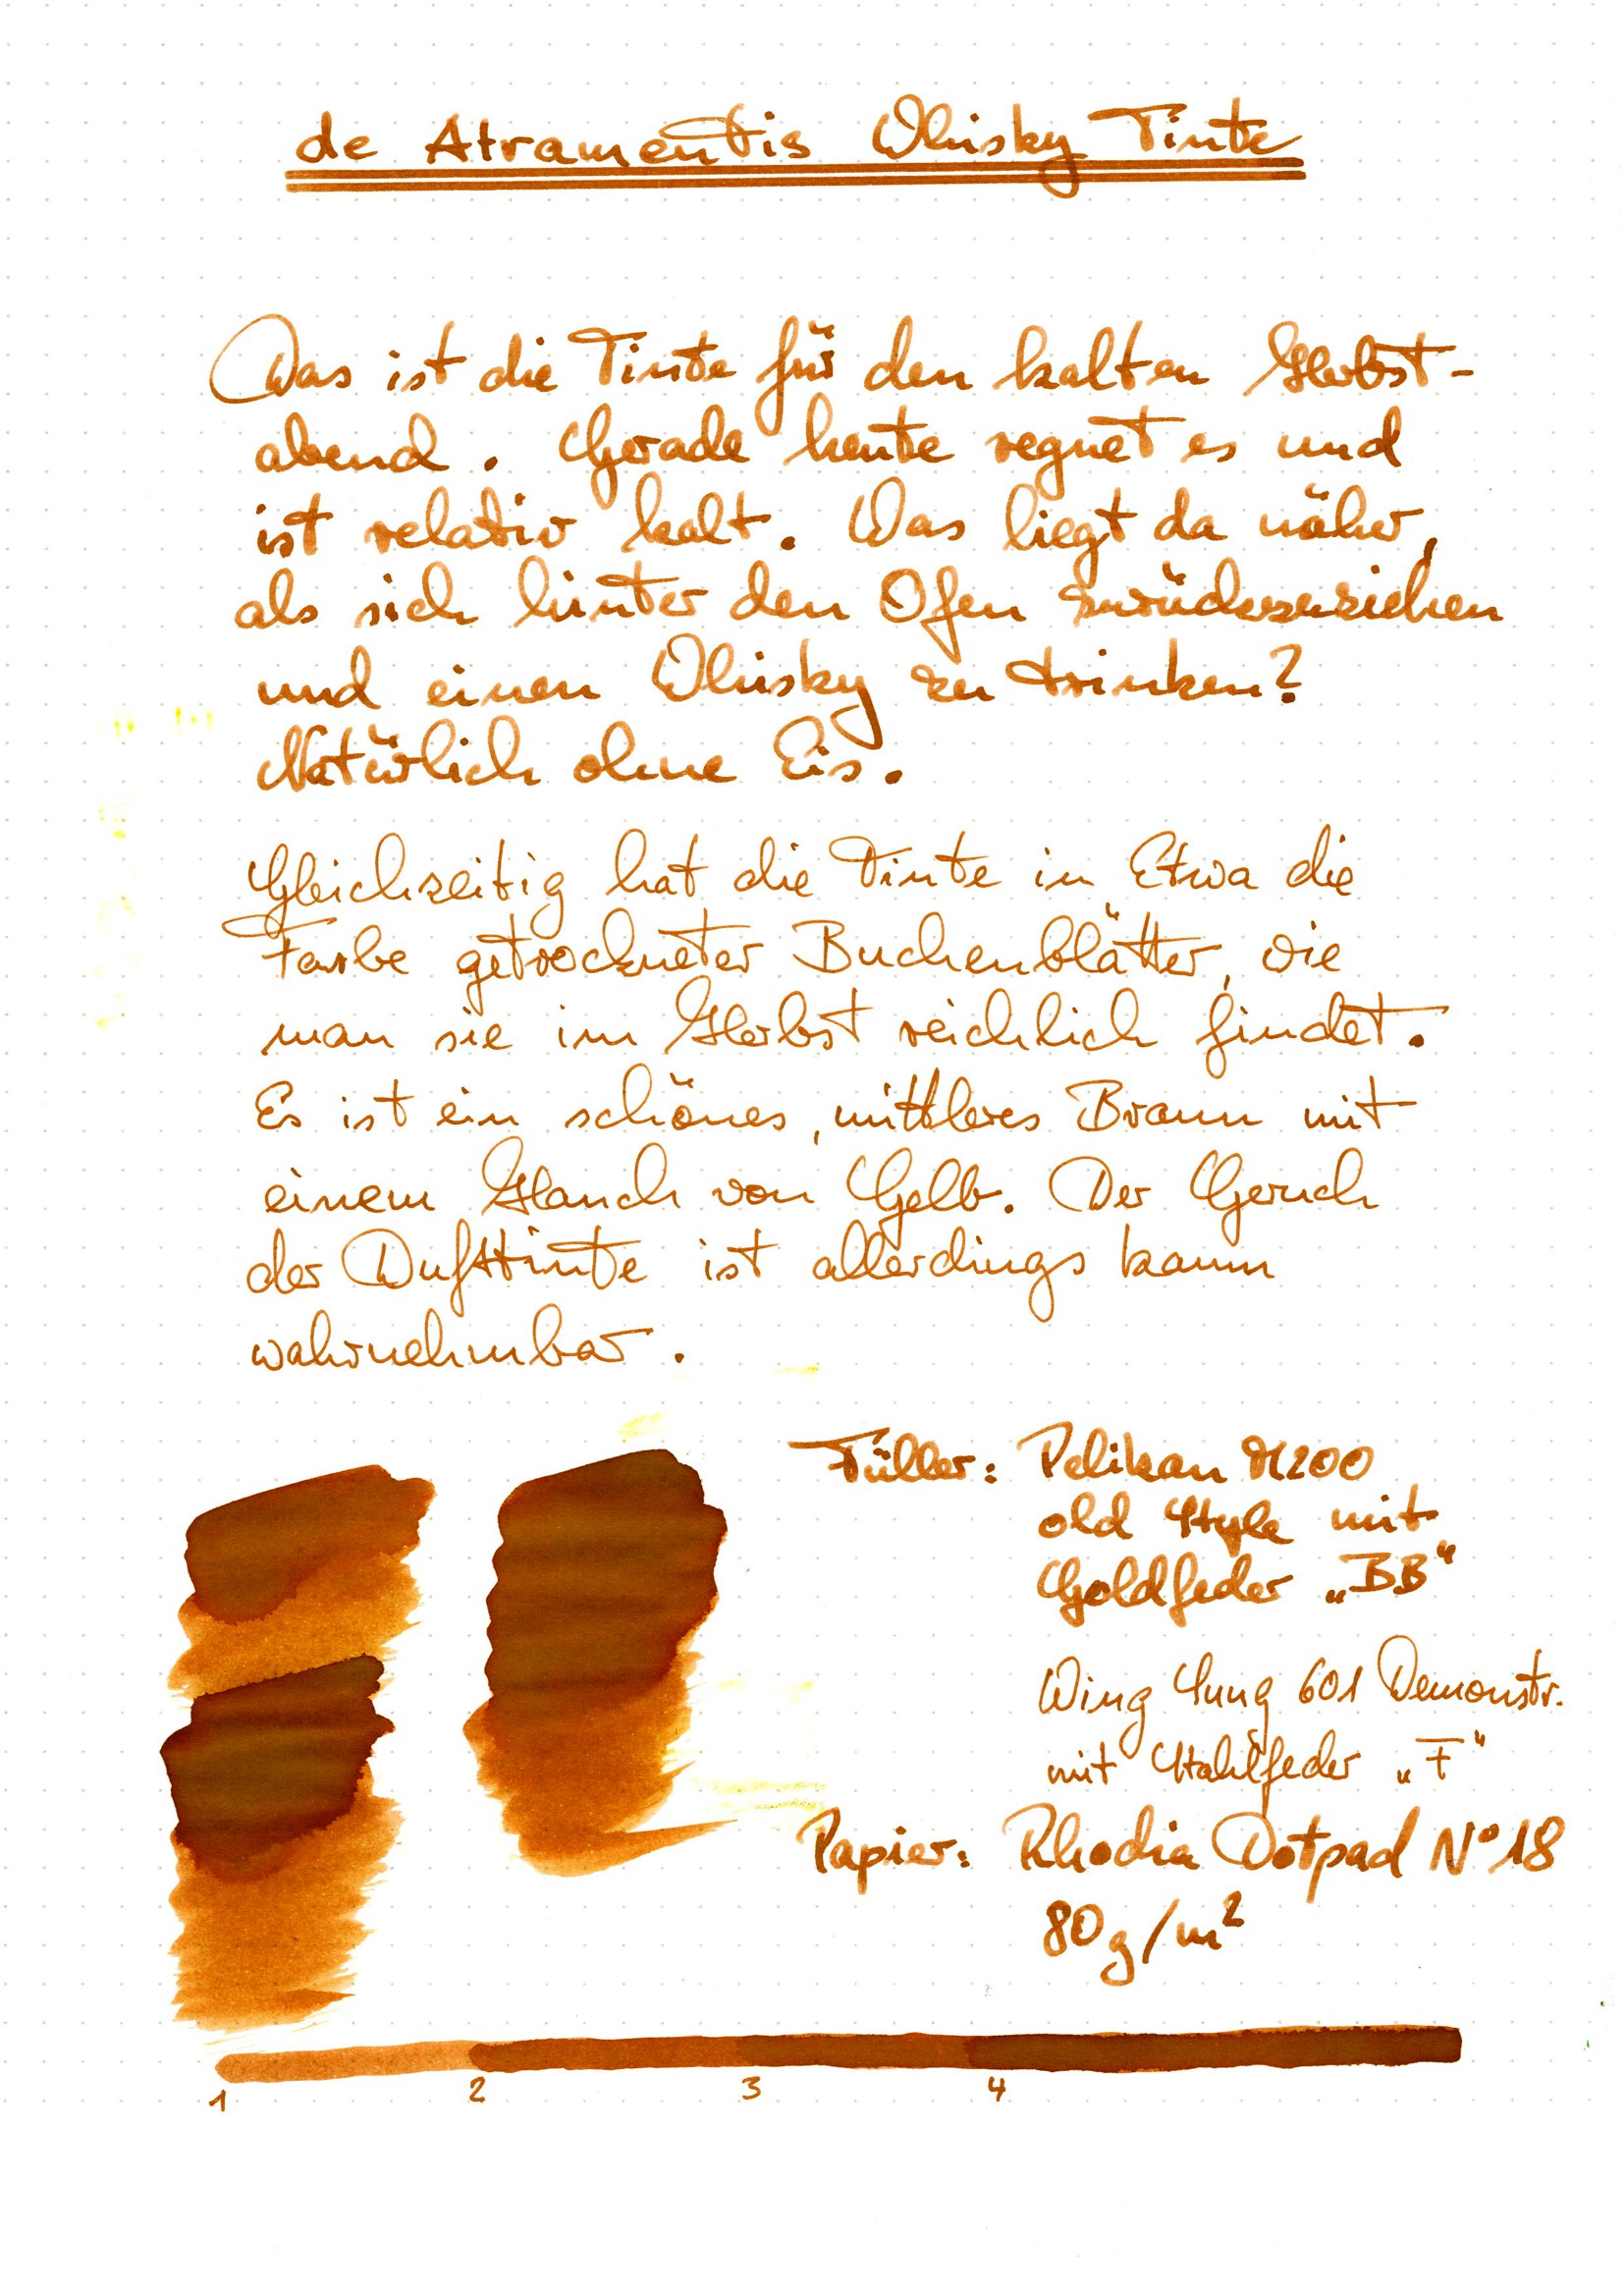 de Atramentis Whisky Tinte
Das ist die Tinte für den kalten Herbst-
abend. Gerade heute regnet es und
ist relativ kalt. Was liegt da näher,
als sich hinter den Ofen zurückzuziehen
und einen Whisky zu trinken?
Natürlich ohne Eis.
Gleichzeitig hat die Tinte in Etwa die
Farbe getrockneter Buchenblätter, wie
man sie im Herbst reichlich findet.
Es ist ein schönes, mittleres Braun mit
einem Hauch von Gelb. Der Geruch
der Dufttinte ist allerdings kaum
wahrnehmbar.
Füller: Pelikan M200
old Style mit
Goldfeder „BB“
Wing Sung 601 Demonstr.
mit Stahlfeder „F“
Papier: Rhodia Dotpad N° 18
80g/m²
1 2 3 4